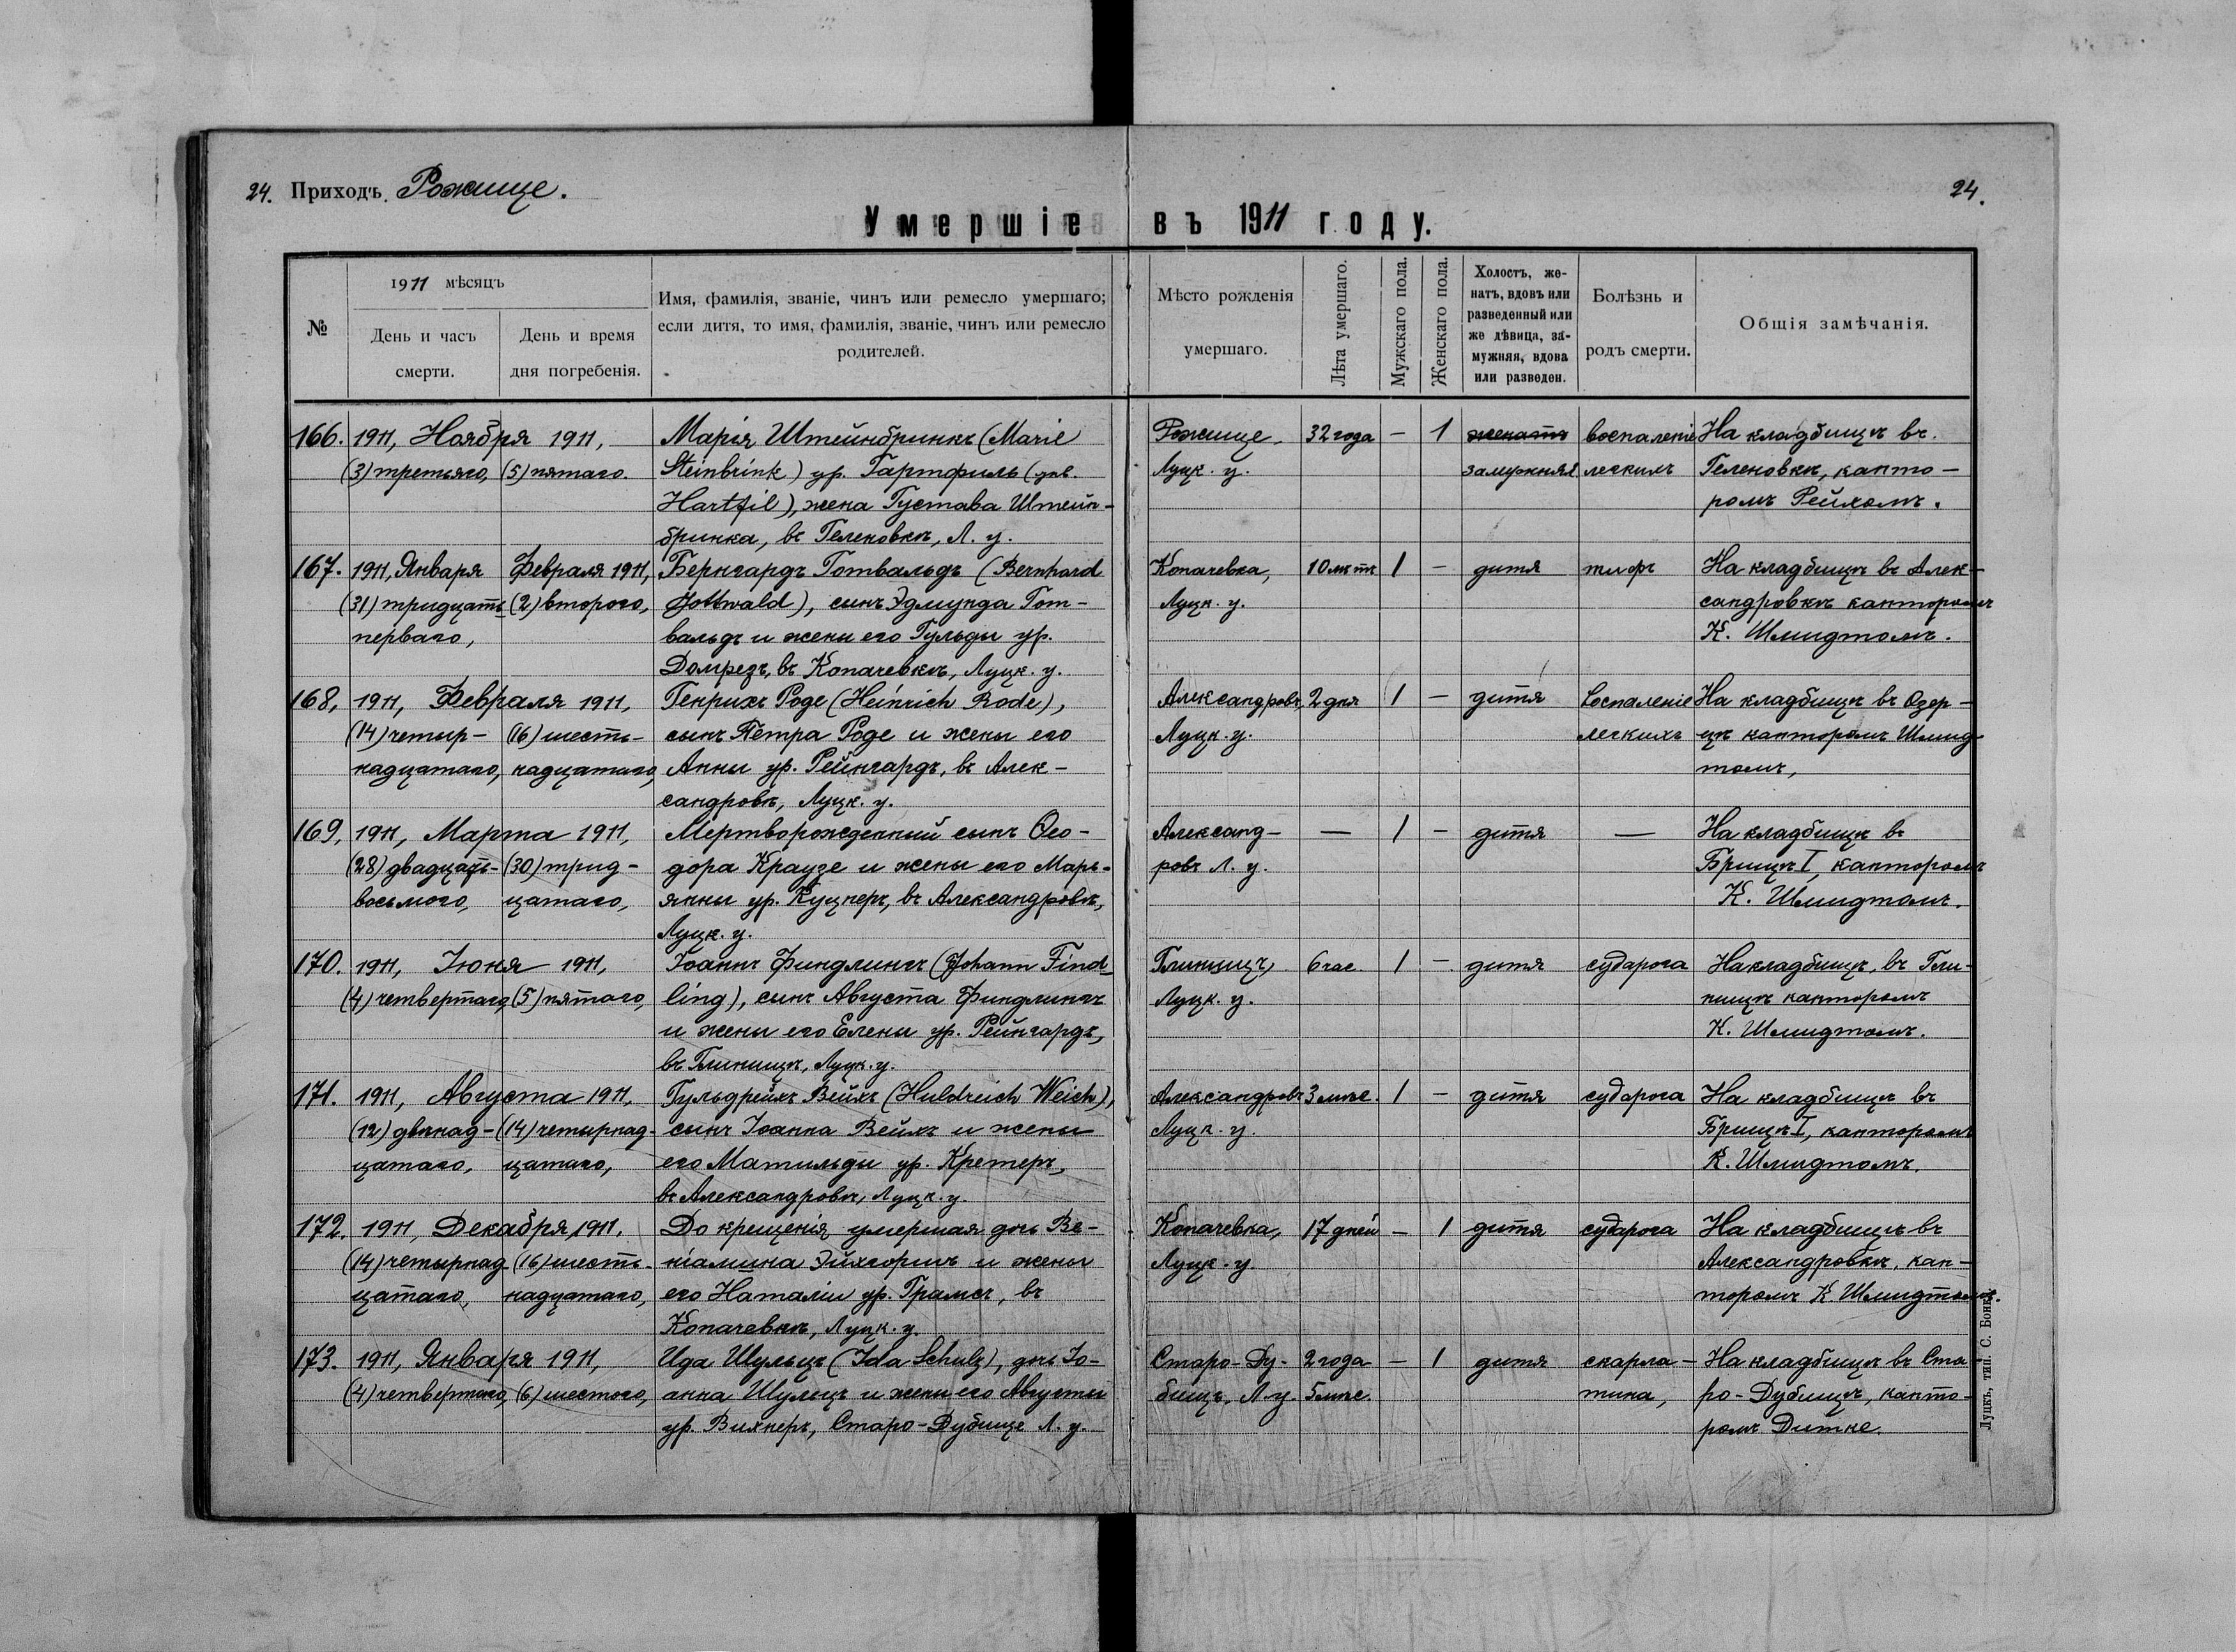 24. Приходъ Рожище.
24.
Умершіе въ 1911 году.
№
1911 мѣсяцъ
День и часъ смерти.
День и время дня погребенія.
Имя, фамилія, званіе, чинъ или ремесло умершаго;
если дитя, то имя, фамилія, званіе, чинъ или ремесло
родителей.
Мѣсто рожденія
умершаго.
Лѣта умершаго.
Мужскаго пола.
Женскаго пола.
Холостъ, же-
натъ, вдовъ или
разведенный или
же дѣвица, за-
мужняя, вдова
или разведен.
Болѣзнь и
родъ смерти.
Общія замѣчанія.
166. 1911, Ноября 1911, Марія Штейнбринкъ (Marie Рожище, 32 года — 1 женатъ воспаленіе На кладбищѣ въ
(3) третьяго, (5) пятаго. Steinbrink) ур. Гартфиль ( Луцк. у. замужняя легкихъ Геленовкѣ, канто-
Hartfil), жена Густава Штейн- ромъ Рейхомъ.
бринка, въ Геленовкѣ, Л. у.
167. 1911, Января Февраля 1911, Бернгардъ Готвальдъ (Bernhard Копачевка, 10 лѣтъ 1 — дитя тифъ На кладбищѣ въ Алек-
(31) тридцать (2) второго, Gottwald), сынъ Эдмунда Гот- Луцк. у. сандровкѣ канторомъ
перваго, вальдъ и жены его Гульды ур. К. Шмидтомъ.
Домрезъ, въ Копачевкѣ, Луцк. у.
168, 1911, Февраля 1911, Генрихъ Роде (Heinrich Rode), Александровъ, 2 дня 1 — дитя воспаленіе На кладбищѣ въ Озер-
(14) четыр- (16) шесть- сынъ Петра Роде и жены его Луцк. у. легкихъ цѣ канторомъ Шмид-
надцатаго, надцатаго, Анны ур. Рейнгардъ, въ Алек- томъ,
сандровѣ, Луцк. у.
169, 1911, Марта 1911, Мертворожденный сынъ Ѳео- Александ- — 1 — дитя — На кладбищѣ въ
(28) двадцать- (30) трид- дора Краузе и жены его Марь- ровъ Л. у. Брищѣ I, канторомъ
восьмого, цатаго, янны ур. Куцнеръ, въ Александровѣ, К. Шмидтомъ.
Луцк. у.
170. 1911, Іюня 1911, Іоаннъ Финдлингъ (Johann Find- Глинищъ, 6 час. 1 — дитя сударога На кладбищѣ, въ Гли-
(4) четвертаго, (5) пятаго, ling), сынъ Августа Финдлингъ Луцк. у. нищѣ канторомъ
и жены его Елены ур. Рейнгардъ, К. Шмидтомъ.
въ Глинищѣ, Луцк. у.
171. 1911, Августа 1911, Гульдрейхъ Вейхъ (Huldreich Weich), Александровъ 3 мѣс. 1 — дитя сударога На кладбищѣ въ
(12) двѣнад- (14) четырнад- сынъ Іоанна Вейхъ и жены Луцк. у. Брищѣ I, канторомъ
цатаго, цатаго, его Матильды ур. Кретеръ, К. Шмидтомъ.
въ Александровѣ, Луцк. у.
172. 1911, Декабря, 1911. До крещенія умершая дочь Ве- Копачевка, 17 дней — 1 дитя сударога На кладбищѣ въ
(14) четырнад- (16) шесть- ніамина Эйхгорнъ и жены Луцк. у Александровкѣ, кан-
цатаго, надцатаго, его Наталіи ур. Грамсъ, въ торомъ К. Шмидтомъ.
Копачевкѣ, Луцк. у.
173. 1911, Января 1911, Ида Шульцъ (Ida Schulz), дочь Іо- Старо-Ду- 2 года — 1 дитя скарла- На кладбищѣ въ Ста-
(4) четвертаго, (6) шестого, анна Шульцъ и жены его Августы бище, Л. у. 5 мѣс. тина, ро-Дубищѣ, канто-
ур. Вихнеръ, Старо-Дубище Л. у. ромъ Дитке.
Луцкъ, тип. С. Бонка